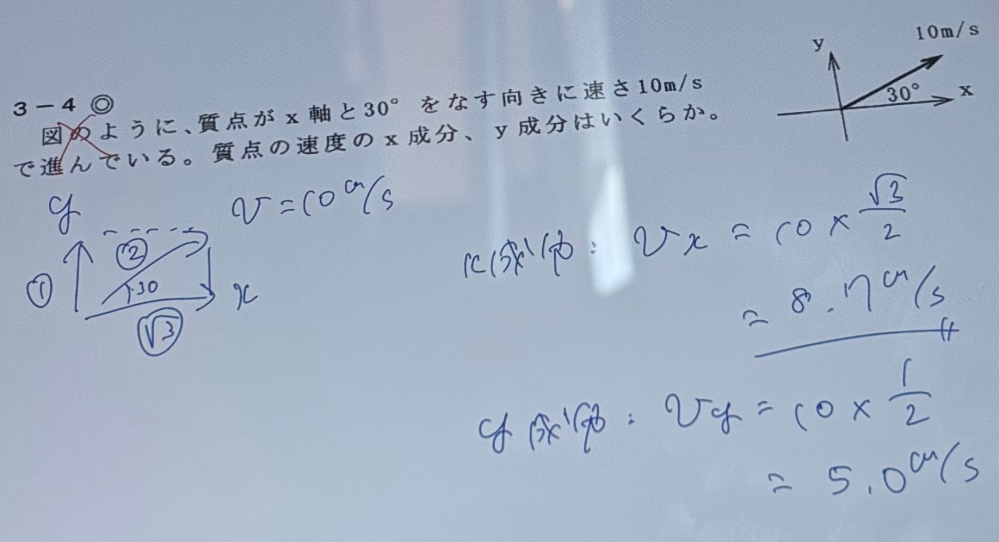 3－4 ◎
図のように、質点がx軸と30°をなす向きに速さ10m/s
で進んでいる。質点の速度のx成分、y成分はいくらか。
y
10m/s
30°
x
y
v = 10 m/s
② 
① 
30
x
√3
x成分 : vx = 10 × √3/2
= 8.7 m/s
y成分 : vy = 10 × 1/2
= 5.0 m/s